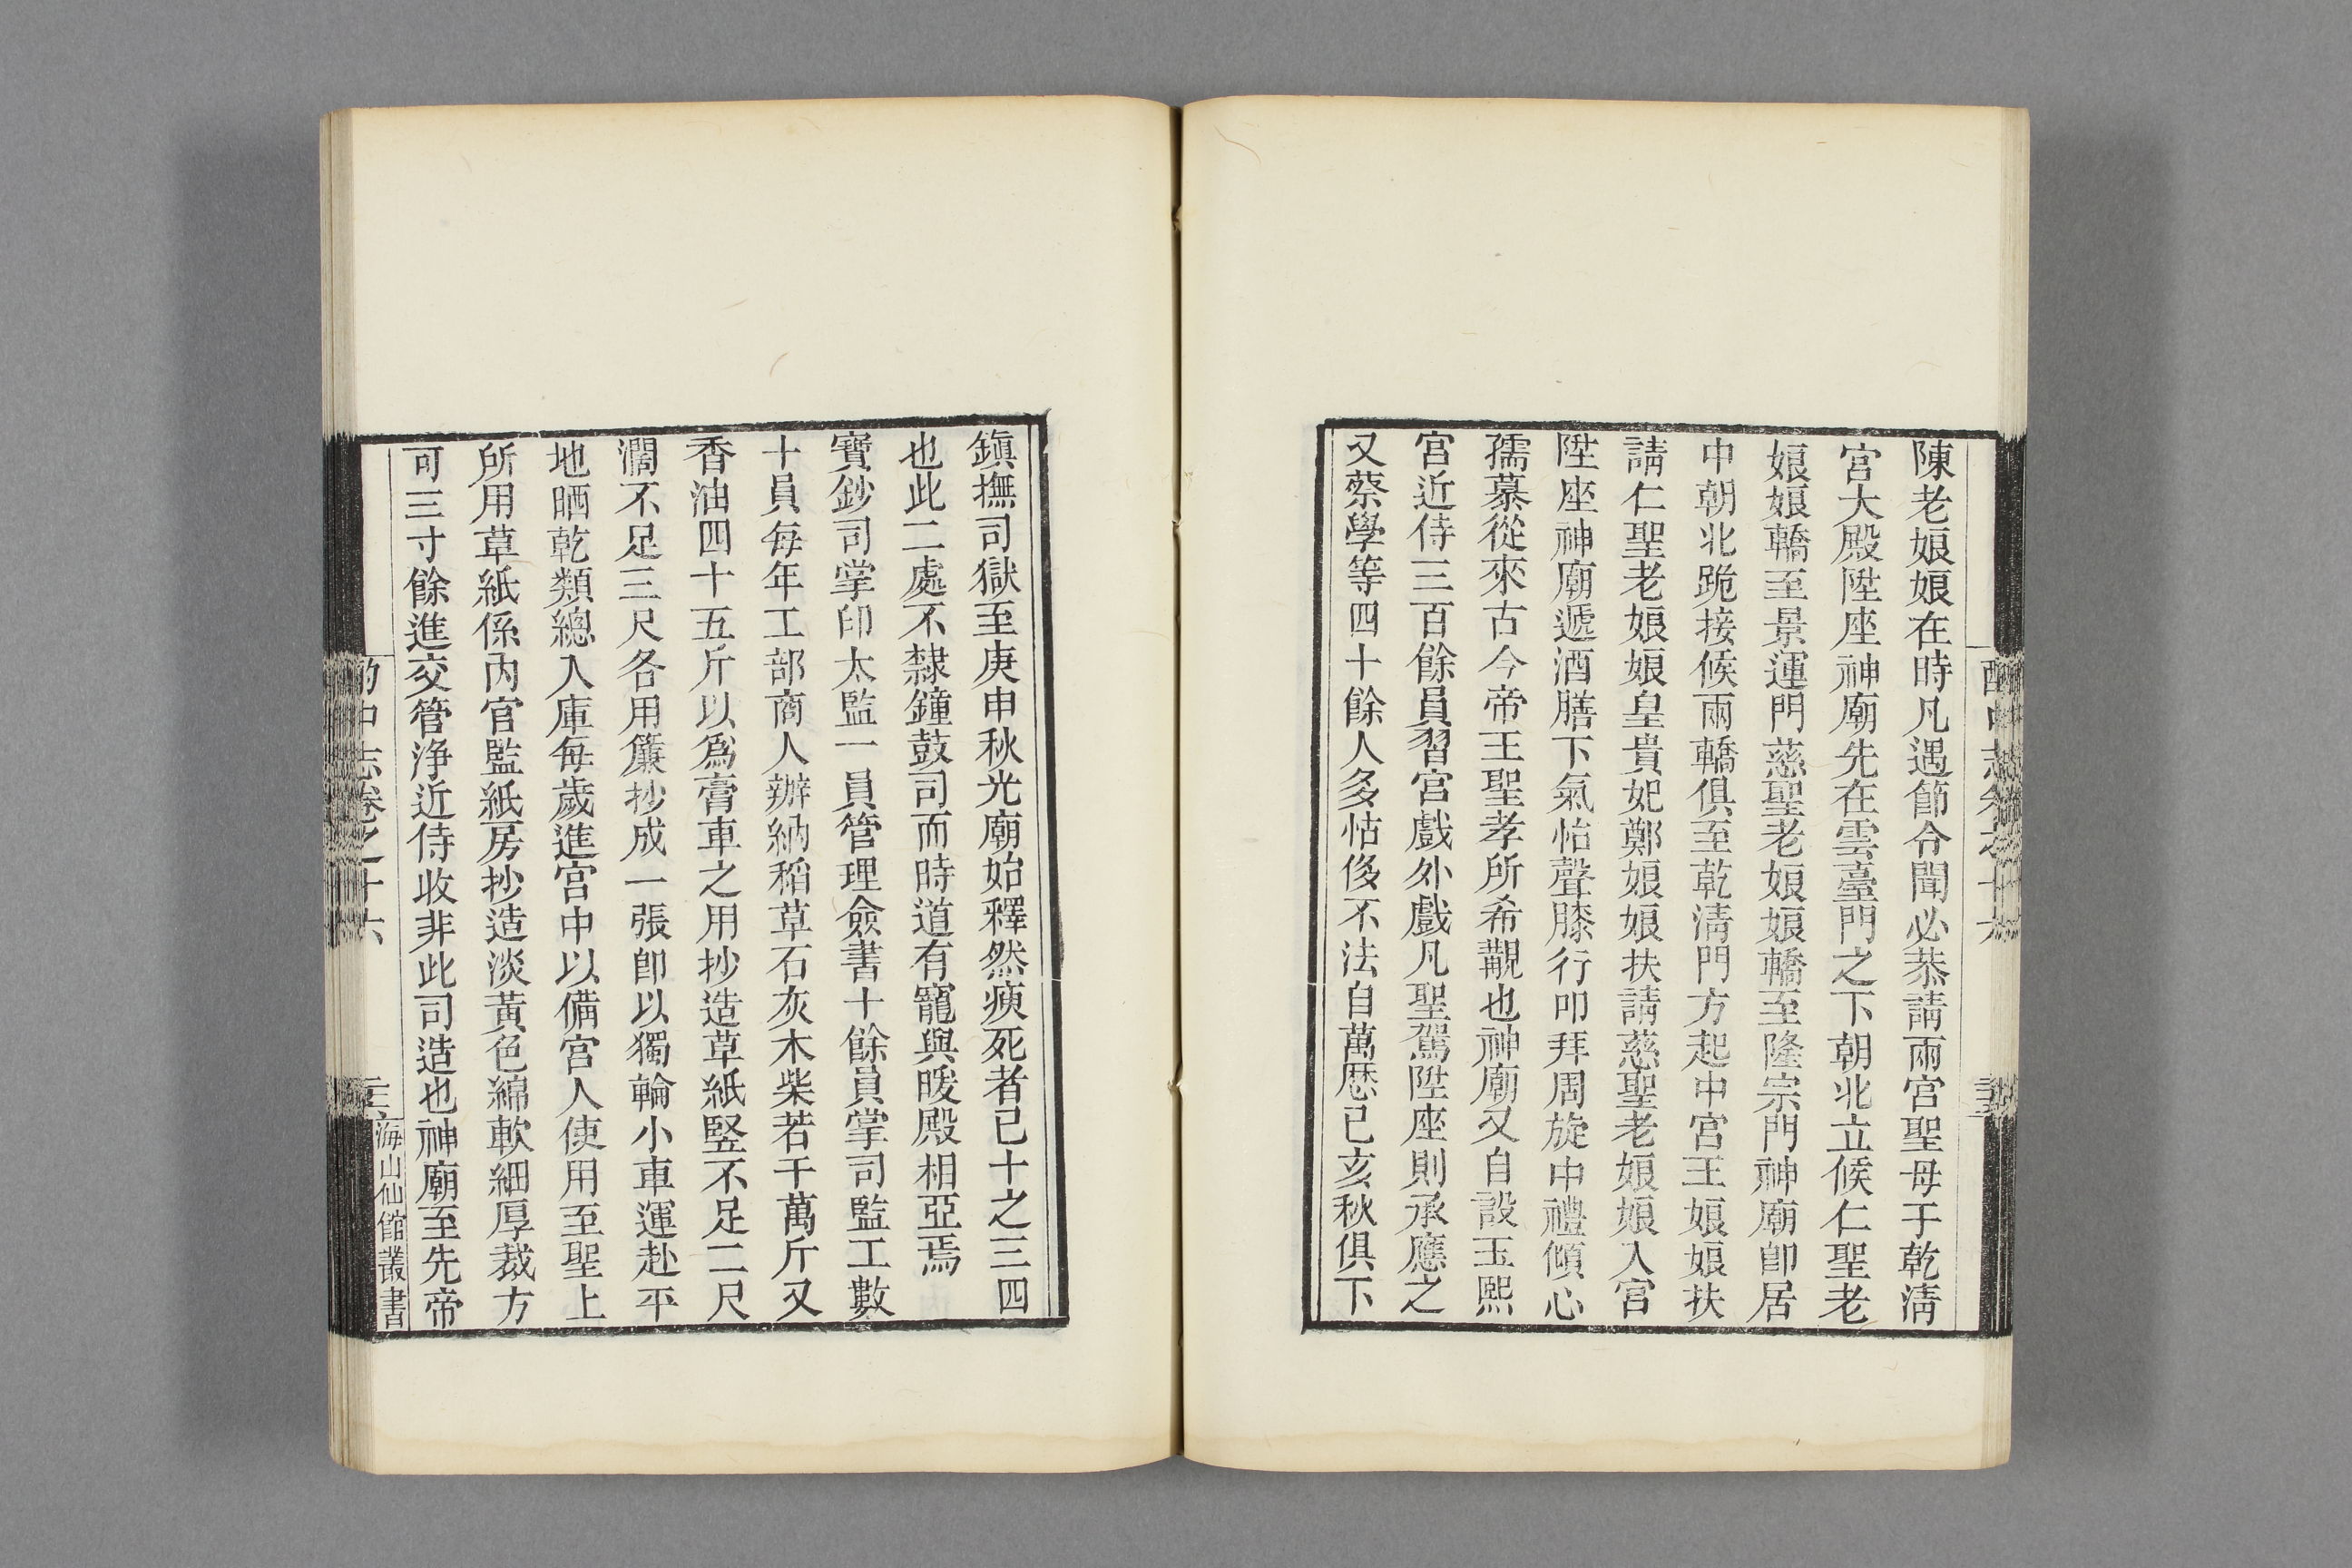 陳老娘娘在時凡遇節令聞必恭請兩宮聖母于乾清
宮大殿陞座神廟先在雲臺門之下朝北立候仁聖老
娘娘轎至景運門慈聖老娘娘轎至隆宗門神廟卽居
中朝北跪接候兩轎俱至乾清門方起中宮王娘娘扶
請仁聖老娘娘皇貴妃鄭娘娘扶請慈聖老娘娘入宮
陞座神廟遞酒膳下氣怡聲膝行叩拜周旋中禮傾心
孺慕從來古今帝王聖孝所希覯也神廟又自設玉熙
宮近侍三百餘員習宮戲外戲凡聖駕陞座則承應之
又蔡學等四十餘人多怙侈不法自萬歷己亥秋俱下
鎮撫司獄至庚申秋光廟始釋然瘐死者已十之三四
也此二處不隸鐘鼓司而時道有寵與暖殿相亞焉
寶鈔司掌印太監一員管理僉書十餘員掌司監工數
十員每年工部商人辦納稻草石灰木柴若干萬斤又
香油四十五斤以爲膏車之用抄造草紙竪不足二尺
濶不足三尺各用簾抄成一張卽以獨輪小車運赴平
地晒乾類總入庫每歲進宮中以備宮人使用至聖上
所用草紙係內官監紙房抄造淡黃色綿軟細厚裁方
可三寸餘進交管淨近侍收非此司造也神廟至先帝
酌中志卷之十六
海山仙館叢書